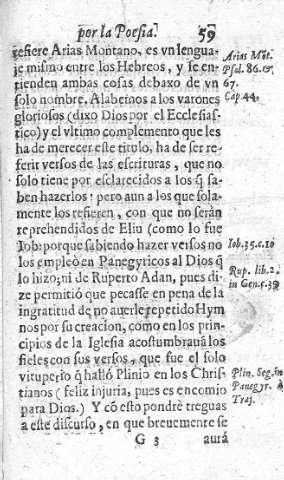 por la Poesia. 59
refiere Arias Montano, es vn lengua-
je mismo entre los Hebreos, y se en-
tienden ambas cosas debaxo de vn
solo nombre. Alabemos a los varones
gloriosos (dixo Dios por el Ecclesias-
tico) y el vltimo complemento que les
ha de merecer este titulo, ha de ser re-
ferir versos de las escrituras, que no
solo tiene por esclarecidos a los q̃ sa-
ben hazerlos: pero aun a los que sola-
mente los refieren, con que no seràn
reprehendidos de Eliu (como lo fue
Iob: porque sabiendo hazer versos no
los empleò en Panegyricos al Dios q̃
lo hizo; ni de Ruperto Adan, pues di-
ze permitió que pecasse en pena de la
ingratitud de no auerle repetido Hym
nos por su creacion, como en los prin-
cipios de la Iglesia acostumbrauã los
fieles con sus versos, que fue el solo
vituperio q̃ hallò Plinio en los Chris-
tianos (feliz injuria, pues es encomio
para Dios.) Y cõ esto pondrè treguas
a este discurso, en que breuemente se
G 3 aurá
Arias Mõt.
Psal. 86. &
67.
Cap. 44.
Iob. 35. c. 10
Rup. lib. 2.
in Gen. c. 39
Plin. Seg. in
Panegyr. à
Traj.